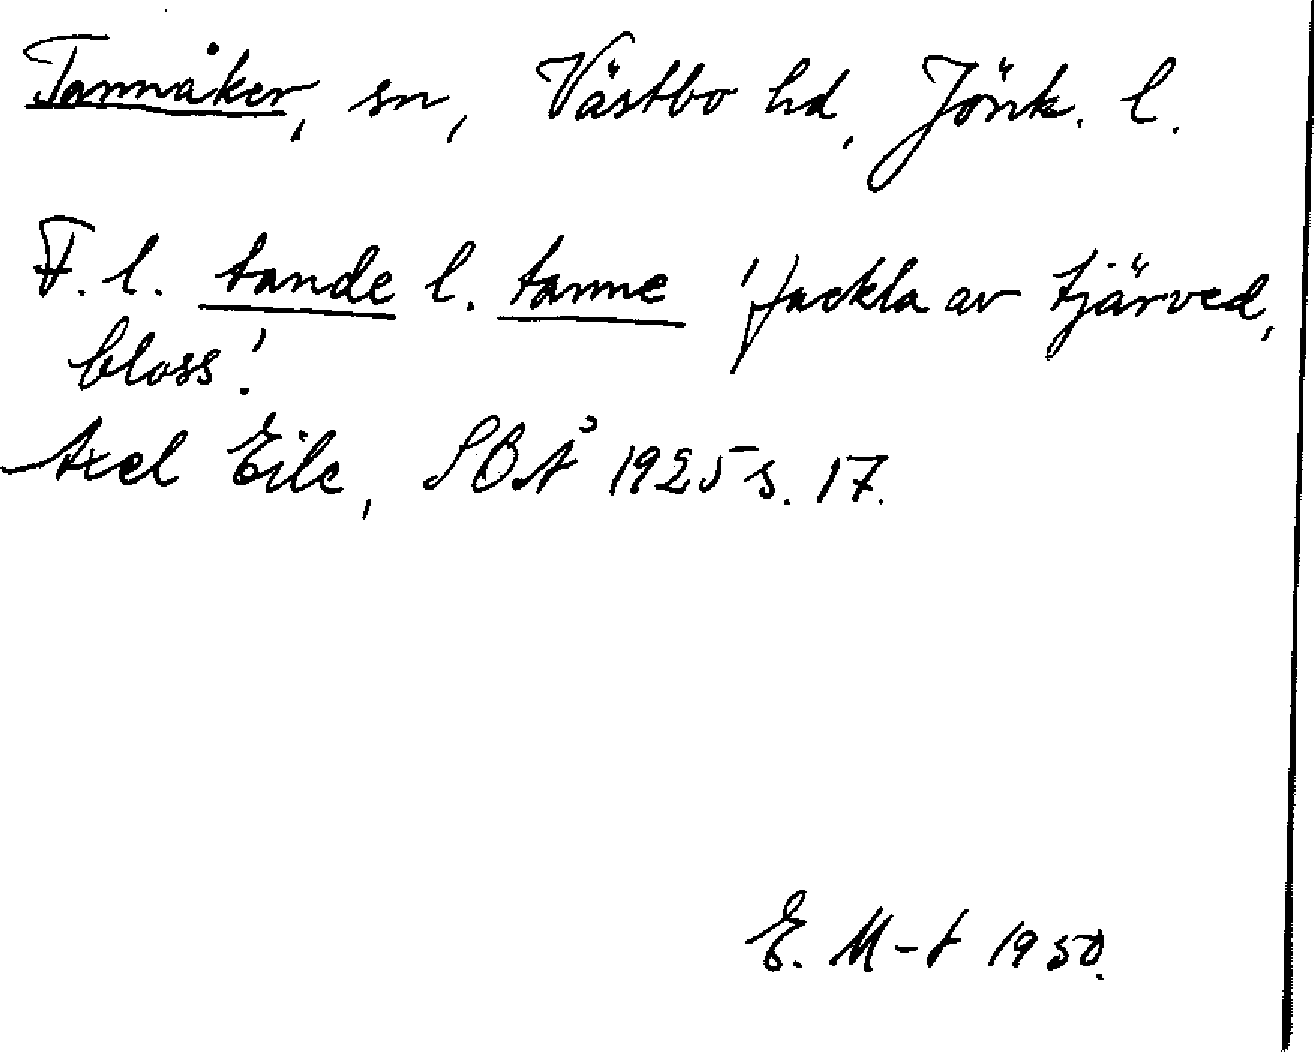 Tannåker, sn, Västbo hd, Jönk. l.
F. l. tande l. tanne 'fackla av tjärved,
bloss'.
Axel Eile, SOÅ 1925 s. 17.
E. M-t 1950.